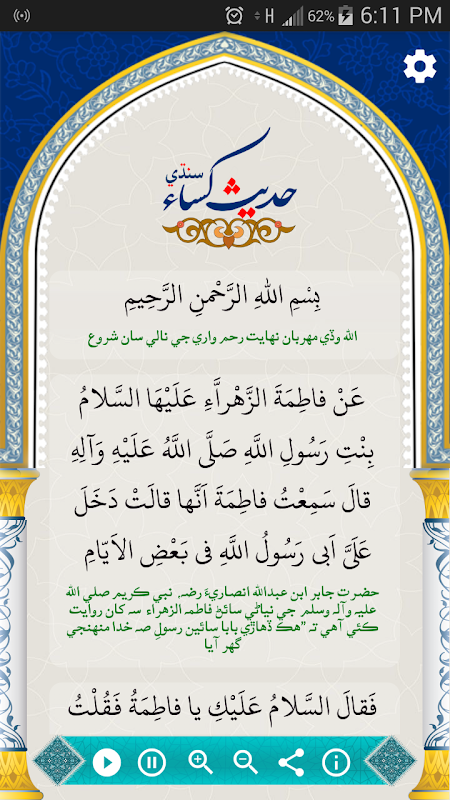 62% 6:11 PM
حديث کساء سنڌي
بِسْمِ اللهِ الرَّحْمنِ الرَّحِيمِ
الله وڏي مهربان نهايت رحم واري جي نالي سان شروع
عَنْ فاطِمَةَ الزَّهْراَّءِ عَلَيْهَا السَّلامُ
بِنْتِ رَسُولِ اللَّهِ صَلَّى اللَّهُ عَلَيْهِ وَآلِهِ
قالَ سَمِعْتُ فاطِمَةَ اَنَّها قالَتْ دَخَلَ
عَلَىَّ اَبى رَسُولُ اللَّهِ فى بَعْضِ الاَيّامِ
حضرت جابر ابن عبدالله انصاريءَ رضہ، نبي ڪريم صلي الله
عليہ وآلہ وسلم جي نياڻي سائڻ فاطمہ الزهراء سہ کان روايت
ڪئي آهي تہ ”هڪ ڏهاڙي بابا سائين رسولِ صہ خدا منهنجي
گهر آيا
فَقالَ السَّلامُ عَلَيْكِ يا فاطِمَةُ فَقُلْتُ